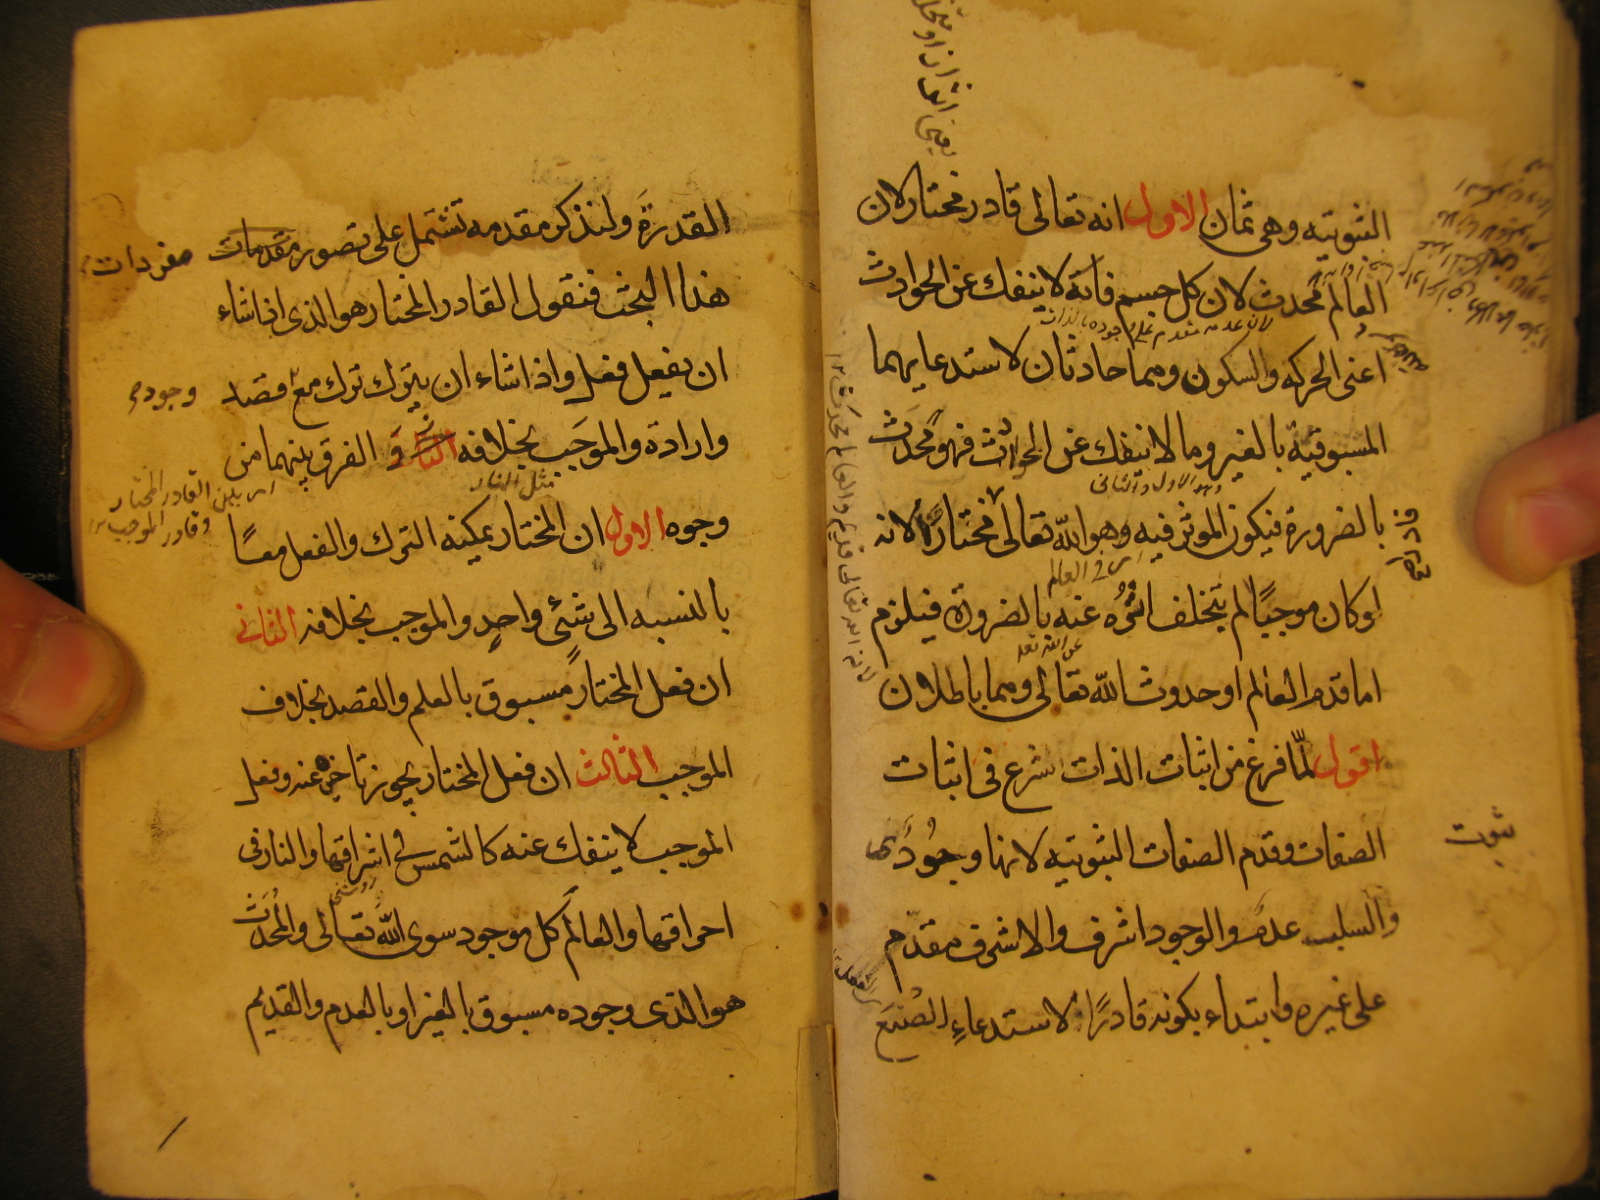 الثبوتيه وهى ثمان الاول انه تعالى قادر مختار لان
العالم محدث لان كل جسم فانه لا ينفك عن الحوادث
لان عدمه مقدم على وجوده بالذات
اعنى الحركه والسكون وهما حادثان لاستدعايهما
المسبوقية بالغير وما لا ينفك عن الحوادث فهو محدث
وهو الاول والثانى
بالضرورة فيكون الموثر فيه وهو الله تعالى مختارا لانه
اى فى العالم
لو كان موجبا لم يتخلف اثره عنه بالضرورة فيلزم
عن الله تعد
اما قدم العالم او حدوث الله تعالى وهما باطلان
اقول لما فرغ من اثبات الذات شرع فى اثبات
الصفات وقدم الصفات الثبوتيه لانها وجودى
ثبوت
والسلب عدم والوجود اشرف والاشرف مقدم
على غيره وابتداء بكونه قادرا لاستدعاء الصنع
لانه الله تعالى قديم والعالم محدث ١٢
القدرة ولنذكر مقدمه تشتمل على تصور مقدمات
مفردات
هذا البحث فنقول القادر المختار هو الذى اذا شاء
ان يفعل فعل واذا شاء ان يترك ترك مع قصد
وجود
وارادة والموجب بخلافه والفرق بينهما من
مثل النار
اى بين القادر المختار
وقادر الموجب ١٢
وجوه الاول ان المختار يمكنه الترك والفعل معا
بالنسبه الى شئ واحد والموجب بخلافه الثانى
ان فعل المختار مسبوق بالعلم والقصد بخلاف
الموجب الثالث ان فعل المختار يجوز تاخره عنه وفعل
الموجب لا ينفك عنه كالشمس فى اشراقها والنار فى
روشنى
احراقها والعالم كل موجود سوى الله تعالى والمحدث
هو الذى وجوده مسبوق بالغير او بالعدم والقديم